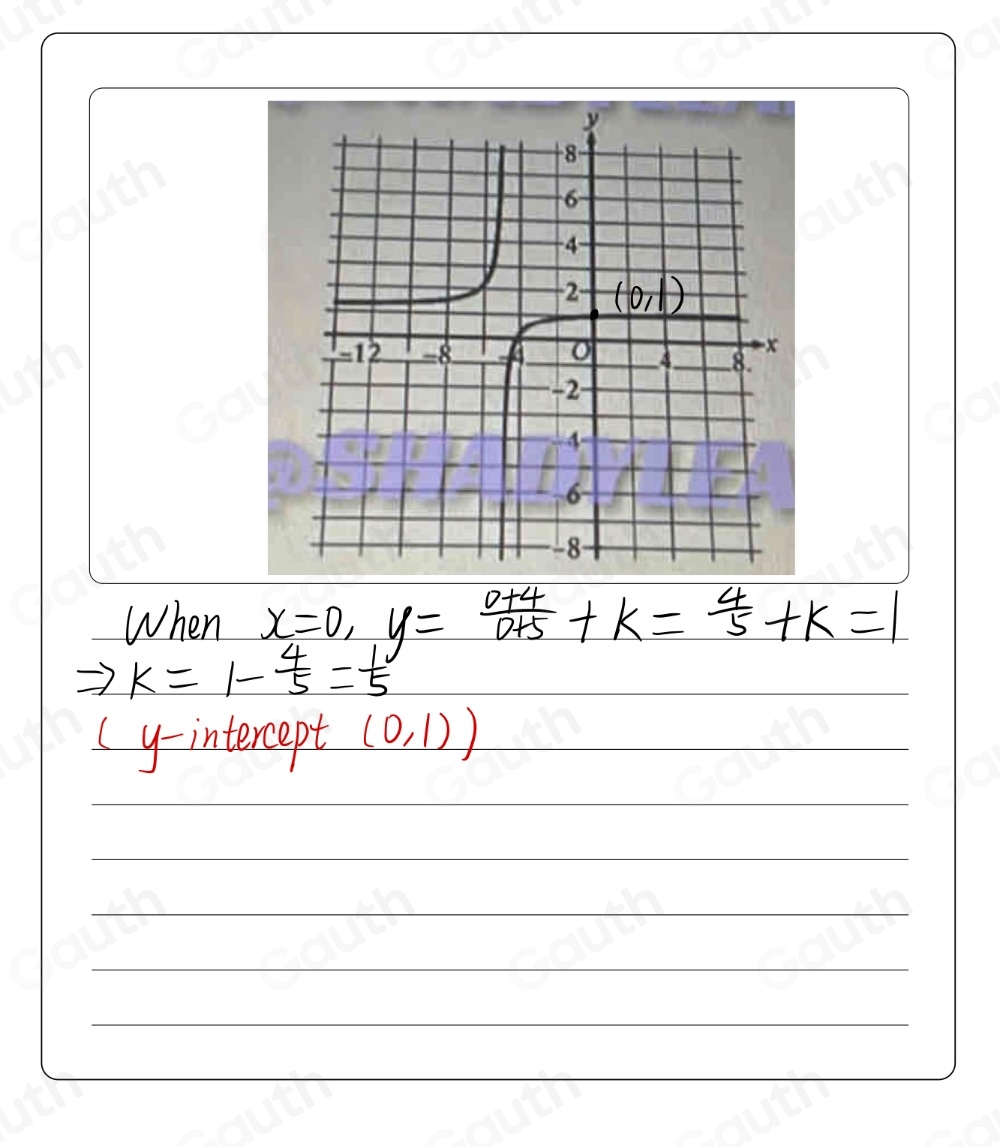 y
8
6
4
2
(0,1)
-12 -8 -4 O 4 8 x
-2
-4
@SHADYLEA
-6
-8
When x=0, y= \frac{0+4}{0+5} + K = \frac{4}{5} + K = 1
⇒ K = 1 - \frac{4}{5} = \frac{1}{5}
( y-intercept (0,1))
Gauth